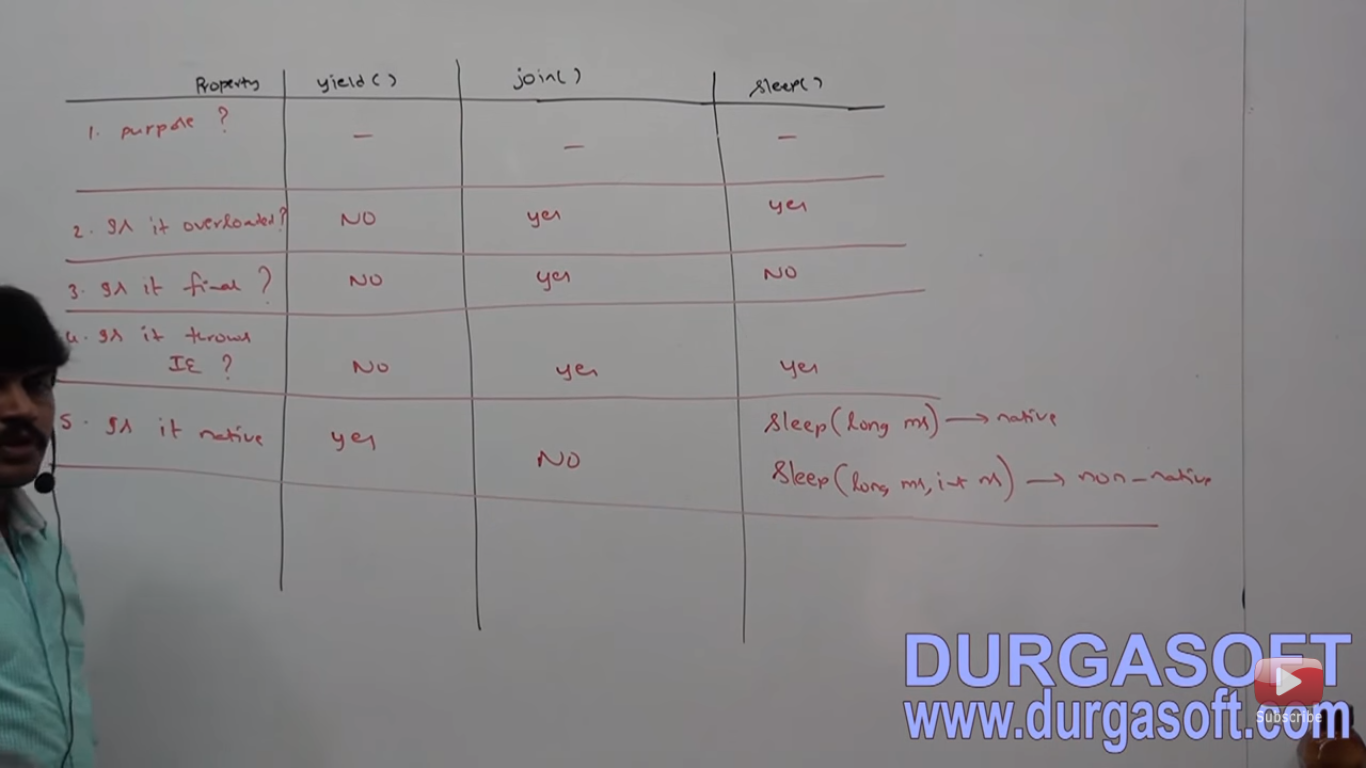 Property yield() join() sleep()
1. purpose ? — — —
2. Is it overloaded? NO yes yes
3. Is it final ? NO yes NO
4. Is it throws
IE ? NO yes yes
5. Is it native yes NO sleep(long ms) → native
sleep(long ms, int ns) → non-native
DURGASOFT
www.durgasoft.com
Subscribe